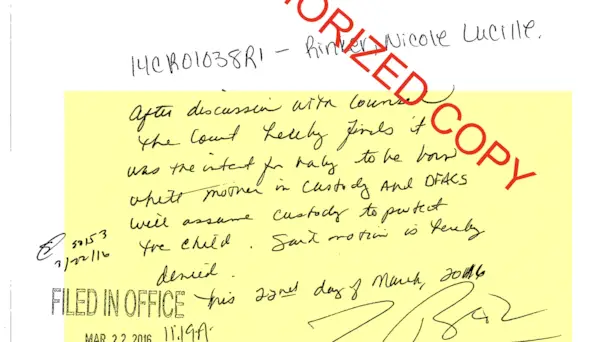 UNAUTHORIZED COPY
14CR01038R1 - Rinker, Nicole Lucille.
After discussion with counsel
the Court hereby finds it
was the intent for baby to be born
while mother in custody and DFACS
will assume custody to protect
the child. Said motion is hereby
denied.
This 22nd day of March, 2016
50153
3/22/16
FILED IN OFFICE
MAR 22 2016 11:19A.